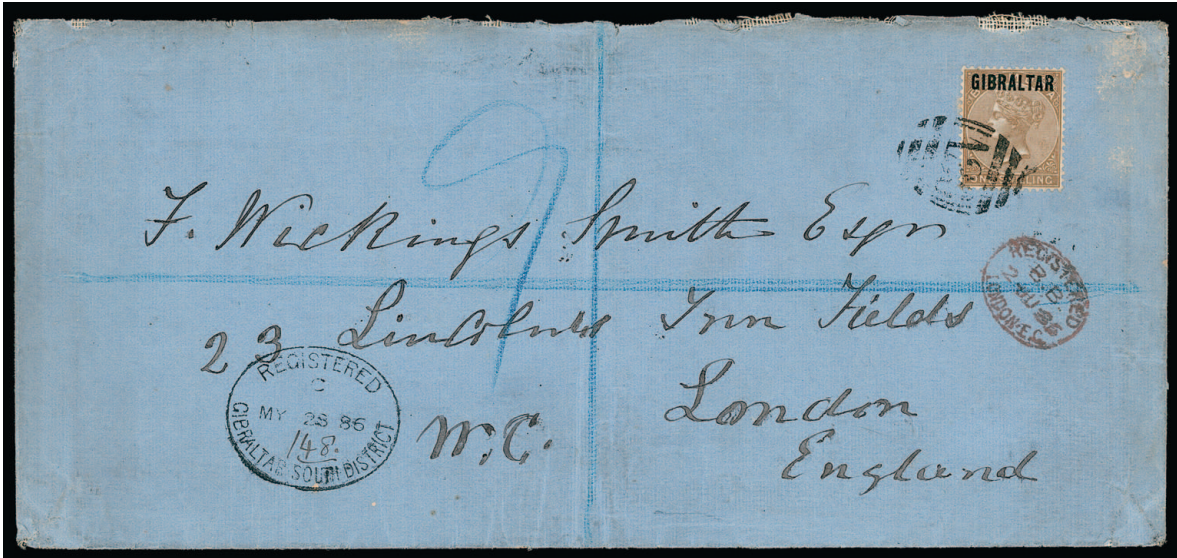 GIBRALTAR
F. Wickings Smith Esqr
23 Lincolns Inn Fields
London
W.C.
England
REGISTERED
C
MY 28 86
148.
GIBRALTAR SOUTH DISTRICT
REGISTERED
LONDON.E.C.
9